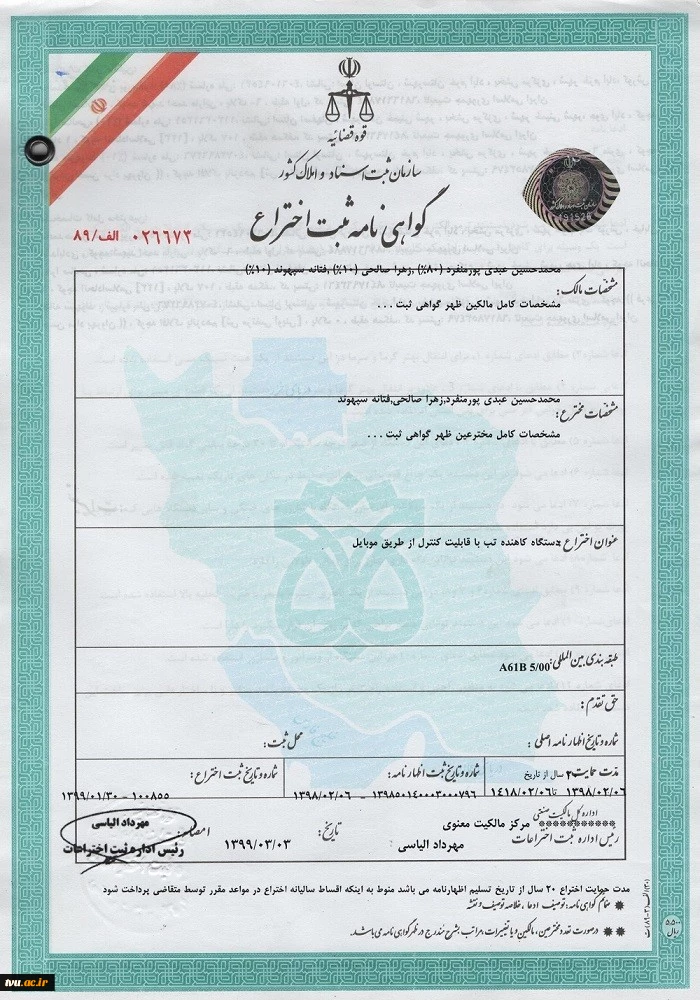 قوه قضائیه
سازمان ثبت اسناد و املاک کشور
گواهی نامه ثبت اختراع
۰۲۶۶۷۳ الف/۸۹
191526
مشخصات مالک: محمدحسین عبدی پورمنفرد (۸۰%) ,زهرا صالحی (۱۰%) ,فتانه سپهوند (۱۰%)
مشخصات کامل مالکین ظهر گواهی ثبت . . .
مشخصات مخترع: محمدحسین عبدی پورمنفرد,زهرا صالحی,فتانه سپهوند
مشخصات کامل مخترعین ظهر گواهی ثبت . . .
عنوان اختراع: دستگاه کاهنده تب با قابلیت کنترل از طریق موبایل
طبقه بندی بین المللی: A61B 5/00
حق تقدم:
شماره و تاریخ اظهارنامه اصلی: محل ثبت:
مدت حمایت: ۲۰ سال از تاریخ شماره و تاریخ ثبت اظهارنامه: شماره و تاریخ ثبت اختراع:
۱۳۹۸/۰۲/۰۶ تا ۱۴۱۸/۰۲/۰۶ ۱۳۹۸۵۰۱۴۰۰۰۳۰۰۰۷۹۶ - ۱۳۹۸/۰۲/۰۶ ۱۰۰۸۵۵ - ۱۳۹۹/۰۱/۳۰
اداره کل مالکیت صنعتی
*********** مرکز مالکیت معنوی
رئیس اداره ثبت اختراعات مهرداد الیاسی
تاریخ: ۱۳۹۹/۰۳/۰۳
امضاء
مهرداد الیاسی
رئیس اداره ثبت اختراعات
مدت حمایت اختراع ۲۰ سال از تاریخ تسلیم اظهارنامه می باشد منوط به اینکه اقساط سالیانه اختراع در مواعد مقرر توسط متقاضی پرداخت شود
* * ضمائم گواهی نامه: توصیف، ادعا، خلاصه توصیف و نقشه
* * درصورت تعدد مخترعین، مالکین و یا تغییرات، مراتب بشرح مندرج در ظهر گواهی نامه می باشد.
۵۵۰۰ ریال
tvu.ac.ir